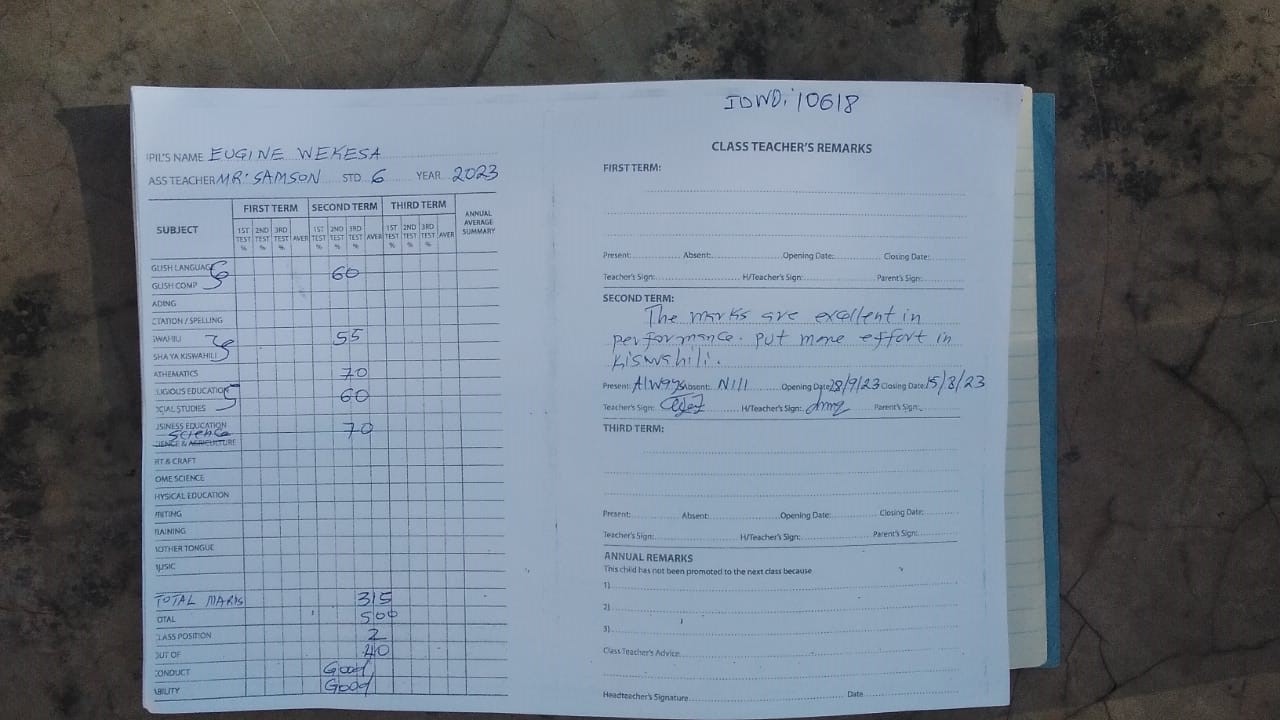 IDWD: 10618
IPIL'S NAME EUGINE WEKESA
ASS TEACHER MR. SAMSON STD 6 YEAR 2023
SUBJECT FIRST TERM SECOND TERM THIRD TERM ANNUAL AVERAGE SUMMARY
1ST TEST % 2ND TEST % 3RD TEST % AVER 1ST TEST % 2ND TEST % 3RD TEST % AVER 1ST TEST % 2ND TEST % 3RD TEST % AVER
GLISH LANGUAGE 60
GLISH COMP
ADING
CTATION / SPELLING
SWAHILI 55
SHA YA KISWAHILI
ATHEMATICS 70
LIGIOUS EDUCATION 60
OCIAL STUDIES
USINESS EDUCATION 70
Science
IENCE & AGRICULTURE
RT & CRAFT
OME SCIENCE
HYSICAL EDUCATION
RITING
RAINING
MOTHER TONGUE
MUSIC
TOTAL MARKS 315
OTAL 500
CLASS POSITION 2
OUT OF 40
CONDUCT Good
ABILITY Good
CLASS TEACHER'S REMARKS
FIRST TERM:
Present: Absent: Opening Date: Closing Date:
Teacher's Sign: H/Teacher's Sign: Parent's Sign:
SECOND TERM:
The marks are excellent in
performance. put more effort in
kiswahili.
Present: Always Absent: Nill Opening Date: 28/9/23 Closing Date: 15/8/23
Teacher's Sign: H/Teacher's Sign: Parent's Sign:
THIRD TERM:
Present: Absent: Opening Date: Closing Date:
Teacher's Sign: H/Teacher's Sign: Parent's Sign:
ANNUAL REMARKS
This child has not been promoted to the next class because
1)
2)
3)
Class Teacher's Advice
Headteacher's Signature Date